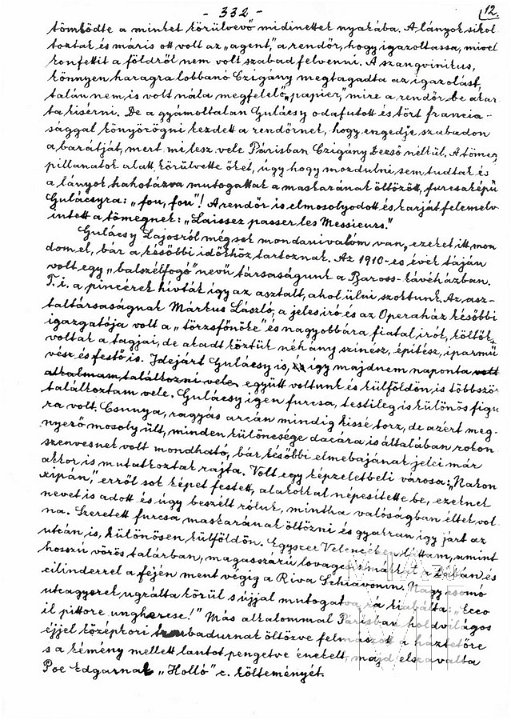 - 332 -
12.
tömködte a minket körülvevő midinettek nyakába. A lányok sikol
toztak és máris ott volt az „agent", a rendőr, hogy igazoltassa, mivel
konfettit a földről nem volt szabad felvenni. A szangvinikus,
könnyen haragra lobbanó Czigány megtagadta az igazolást,
talán nem is volt nála megfelelő „papier," mire a rendőr be akar
ta kisérni. De a gyámoltalan Gulácsy odafutott és tört francia-
sággal könyörögni kezdett a rendőrnek, hogy engedje szabadon
a barátját, mert mi lesz vele Párisban Czigány Dezső nélkül. A tömeg
pillanatok alatt körülvette őket, úgy hogy mozdulni sem tudtak és
a lányok hahotázva mutogattak a maskarának öltözött, furcsaképü
Gulácsyra: „fou, fou"! A rendőr is elmosolyodott és karját felemelv
intett a tömegnek: „Laissez passer les Messieurs."
Gulácsy Lajosról mégsok mondanivalóm van, ezeket itt mon
dom el, bár a későbbi időkhöz tartoznak. Az 1910-es évek táján
volt egy „balszélfogó" nevű társaságunk a Baross-kávéházban.
T.i. a pincérek hívták így az asztalt, ahol ülni szoktunk. Az asz-
taltársaságnak Márkus László, a jeles iró és az Operaház későbbi
igazgatója volt a „törzsfőnöke" és nagyobbára fiatal irók, költők
voltak a tagjai, de akadt köztük néhány szinész, épitész, iparmű
vész és festő is. Idejárt Gulácsy is, így majdnem naponta
együtt voltunk és külföldön is többször
találkoztam vele. Gulácsy igen furcsa, testileg is különös figu
ra volt. Csunya, ragyás arcán mindig kissé torz, de azért meg-
nyerő mosoly ült, minden különcsége dacára is általában rokon
szenvesnek volt mondható, bár későbbi elmebajának jelei már
akkor is mutatkoztak rajta. Volt egy képzeletbeli városa: „Nakon
xipán," erről sok képet festett, alakokkal népesitette be, ezeknek
nevet is adott és úgy beszélt róluk, mintha valóságban éltek vol
na. Szeretett furcsa maskarának öltözni és gyakran így járt az
utcán is, különösen külföldön. Egyszer Velencében láttam, amint
hosszú vörös talárban, magasszárú lovagcsizmában és
cilinderrel a fején ment végig a Riva Schiavonin. Nagy csomó
utcagyerek ugrálta körül s ujjal mutogatva rá kiabálta: „Ecco
il pittore ungherese!" Más alkalommal Párisban holdvilágos
éjjel középkori trubadurnak öltözve felmászott a háztetőre
s a kémény mellett lantot pengetve énekelt, majd elszavalta
Poe Edgarnak „Holló" c. költeményét.